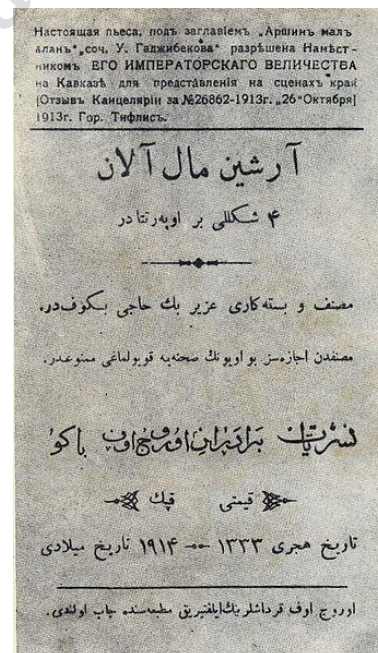 Настоящая пьеса, подъ заглавіемъ „Аршинъ малъ
аланъ“, соч. У. Гаджибекова“ разрѣшена Намѣст-
никомъ ЕГО ИМПЕРАТОРСКАГО ВЕЛИЧЕСТВА
на Кавказѣ для представленія на сценахъ края
(Отзывъ Канцеляріи за №26862-1913г. „26“ Октября)
1913г. Гор. Тифлисъ.
آرشین مال آلان
۴ شکللی بر اوپه‌رتتا در
مصنف و بسته‌کاری عزیر بك حاجی بکوف‌در.
مصنفدن اجازه‌سز بو اویونك صحنه‌یه قویولماغی ممنوعدر.
نشریات برادران اوروج اوف باكو
قیمتی قپك
تاریخ هجری ۱۳۳۳ — ۱۹۱۴ تاریخ میلادی
اوروج اوف قرداشلرینك ایلقتریق مطبعه‌سنده چاپ اولندی.